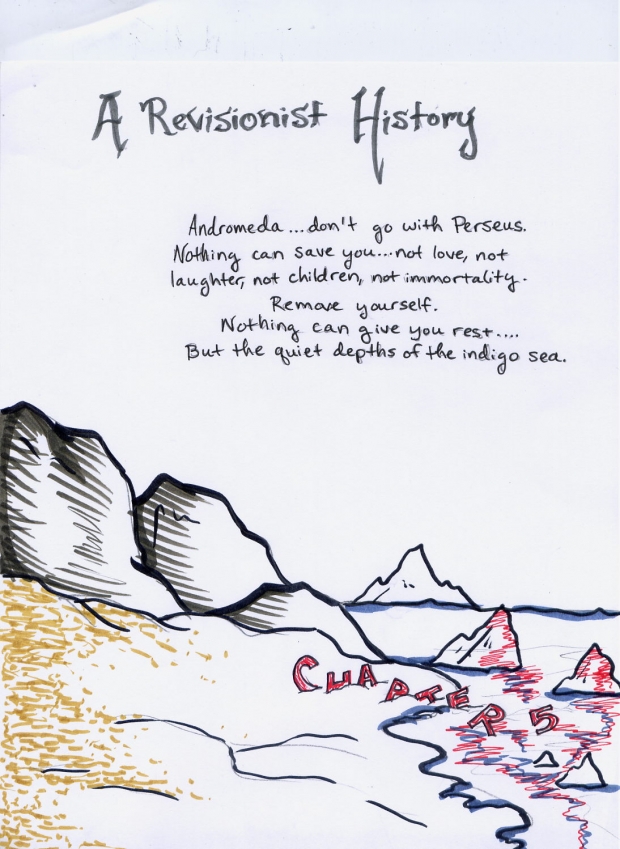 A Revisionist History
Andromeda...don't go with Perseus.
Nothing can save you...not love, not
laughter, not children, not immortality.
Remove yourself.
Nothing can give you rest....
But the quiet depths of the indigo sea.
CHAPTER 5